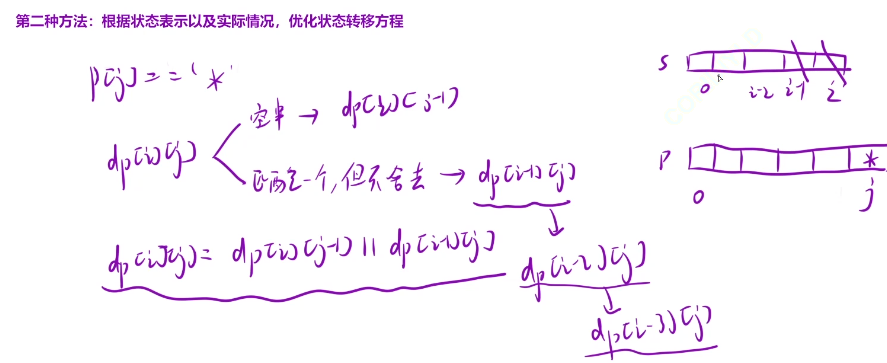 第二种方法：根据状态表示以及实际情况，优化状态转移方程
p[j] == '*'
dp[i][j]
空串 → dp[i][j-1]
匹配一个，但不舍去 → dp[i-1][j]
dp[i][j] = dp[i][j-1] || dp[i-1][j]
dp[i-2][j]
dp[i-3][j]
s
0 i-2 i-1 i
p
*
0 j